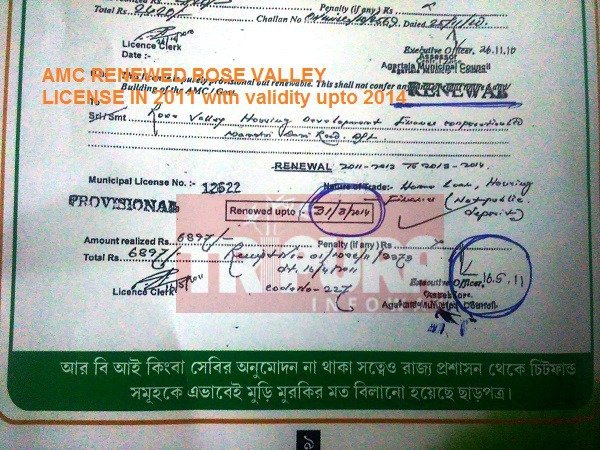 Total Rs. 2620/-
Penalty (if any) Rs
Challan No
Dated
Licence Clerk
Date :-
Executive Officer, 26.11.10
Assessor
Agartala Municipal Council
AMC RENEWED ROSE VALLEY
LICENSE IN 2011 with validity upto 2014
purely provisional and renewable. This shall not confer
Building of the AMC / Govt.
RENEWAL
To
Sri/ Smt Rose Valley Housing Development Finance Corporation Ltd
Road. Agt.
RENEWAL 2011-2012 To 2013-2014.
Municipal License No. :- 12622
Nature of Trade:- Home Loan, Housing
Finance (Not public
deposit)
PROVISIONAL
Renewed upto :- 31/3/2014
Amount realized Rs 6897/-
Penalty (if any) Rs
Total Rs. 6897/-
TRIPURA
INFO
Licence Clerk
code No- 227
Executive Officer, 16.5.11
Assessor
Agartala Municipal Council
আর বি আই কিংবা সেবির অনুমোদন না থাকা সত্বেও রাজ্য প্রশাসন থেকে চিটফান্ড
সমূহকে এভাবেই মুড়ি মুরকির মত বিলানো হয়েছে ছাড়পত্র।
৯